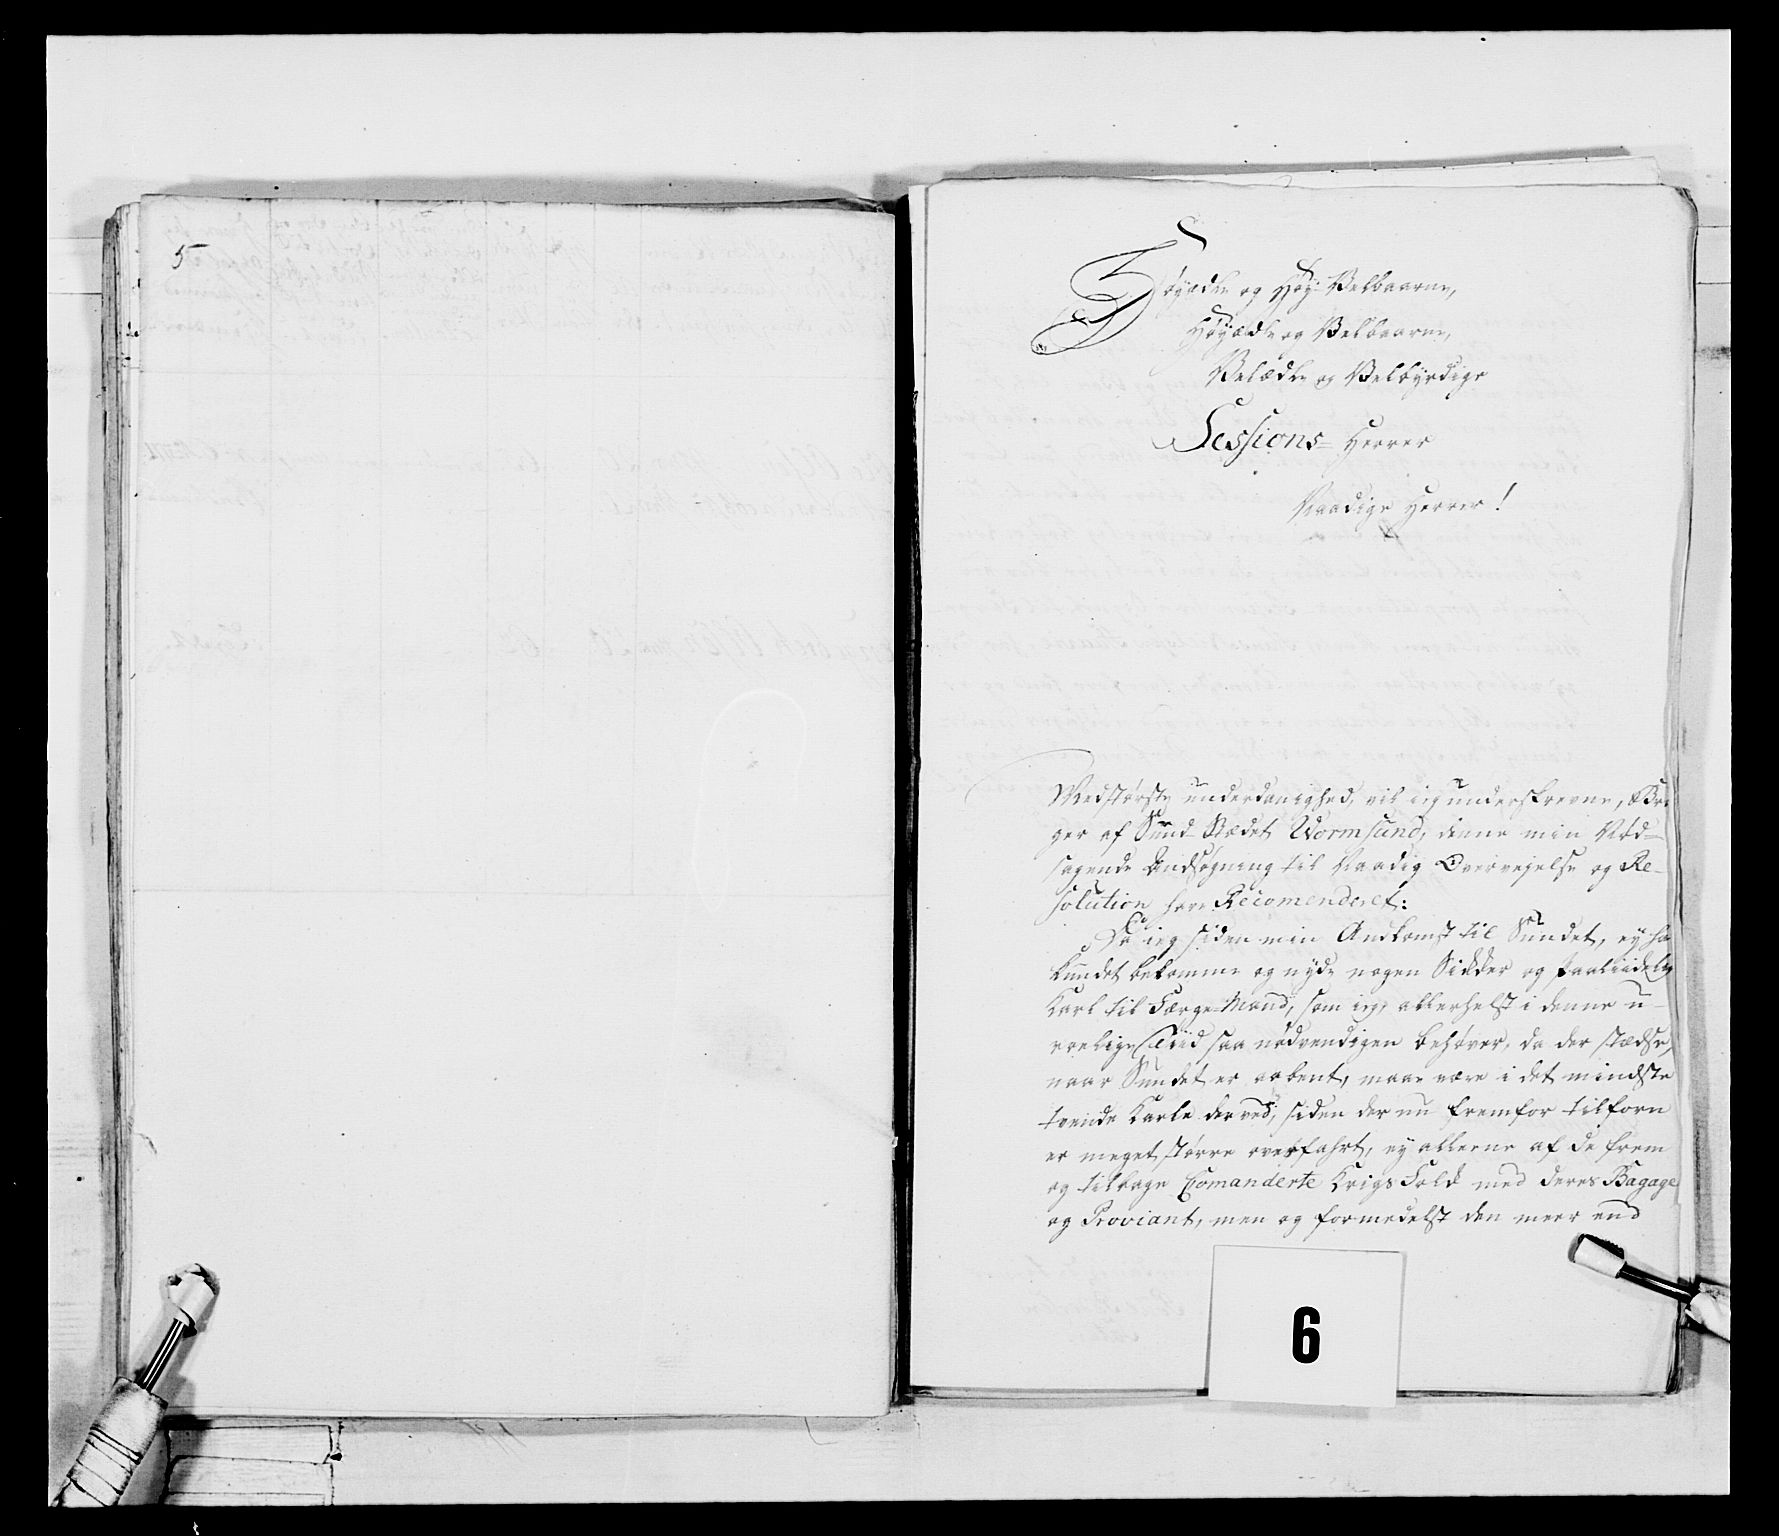 5
Høyædle og Høy-Velbaarne,
Høyædle og Velbaarne,
Velædle og Velbyrdige
Sessions-Herrer
Naadige Herrer!
Med største underdanighed, vil ieg underskrevne, Bru-
ger af Sund-Stædet Wormsund, denne min Nød-
sagende Andsøgning til Naadig Overvejelse og Re-
solution have Recomenderet:
Da ieg siden min Andkomst til Sundet, ey ha
kundet bekomme og nyde nogen Sikker og paaliidelig
Karl til Færge-Mand, som ieg, allerhelst i denne u-
roelige Tiid saa nødvendigen behøver, da der stædse,
naar Sundet er aabent, maae være i det mindste
tvende Karle derved, siden der nu fremfor tilforn
er meget større overfahrt, ey alleene af de frem
og tilbage Comanderte Krigs Folk med deres Bagage
og Proviant, men og formedelst den meer end
6